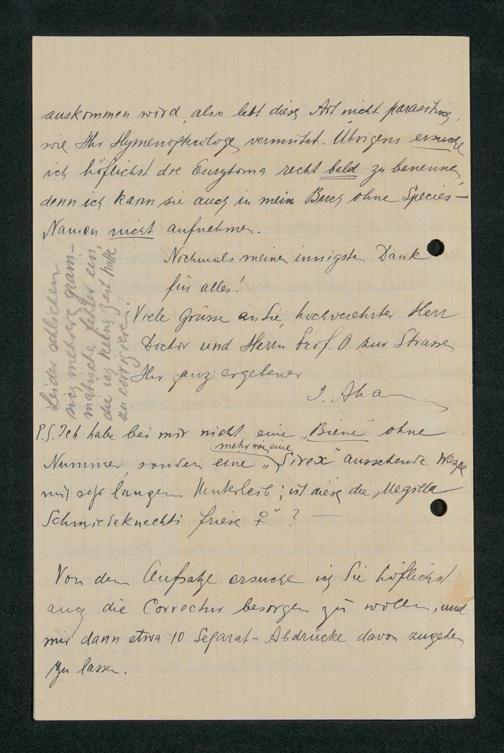 auskommen wird, also lebt diese Art nicht parasitisch,
wie Ihr Hymenopterologe vermutet. Übrigens ersuche
ich höflichst die Eurytoma recht bald zu benennen,
denn ich kann sie auch in mein Buch ohne Species-
Namen nicht aufnehmen.
Nochmals meinen innigsten Dank
für alles!
Viele Grüsse an Sie, hochverehrter Herr
Doctor und Herrn Prof. O. zur Strassen
Ihr ganz ergebener
J.
Leider schlichen
sich mehrere gram-
matische Fehler ein,
die ich keine Zeit hatte
zu corrigieren.
P.S. Ich habe bei mir nicht eine „Biene" ohne
Nummer sondern eine mehr wie eine „Sirex" aussehende Wespe
mit sehr langem Hinterleib; ist diese die „Megilla
Schmiedeknechti Friese ♀" ? —
Von dem Aufsatze ersuche ich Sie höflichst
auch die Correctur besorgen zu wollen, und
mir dann etwa 10 Separat-Abdrücke davon zugehen
zu lassen.